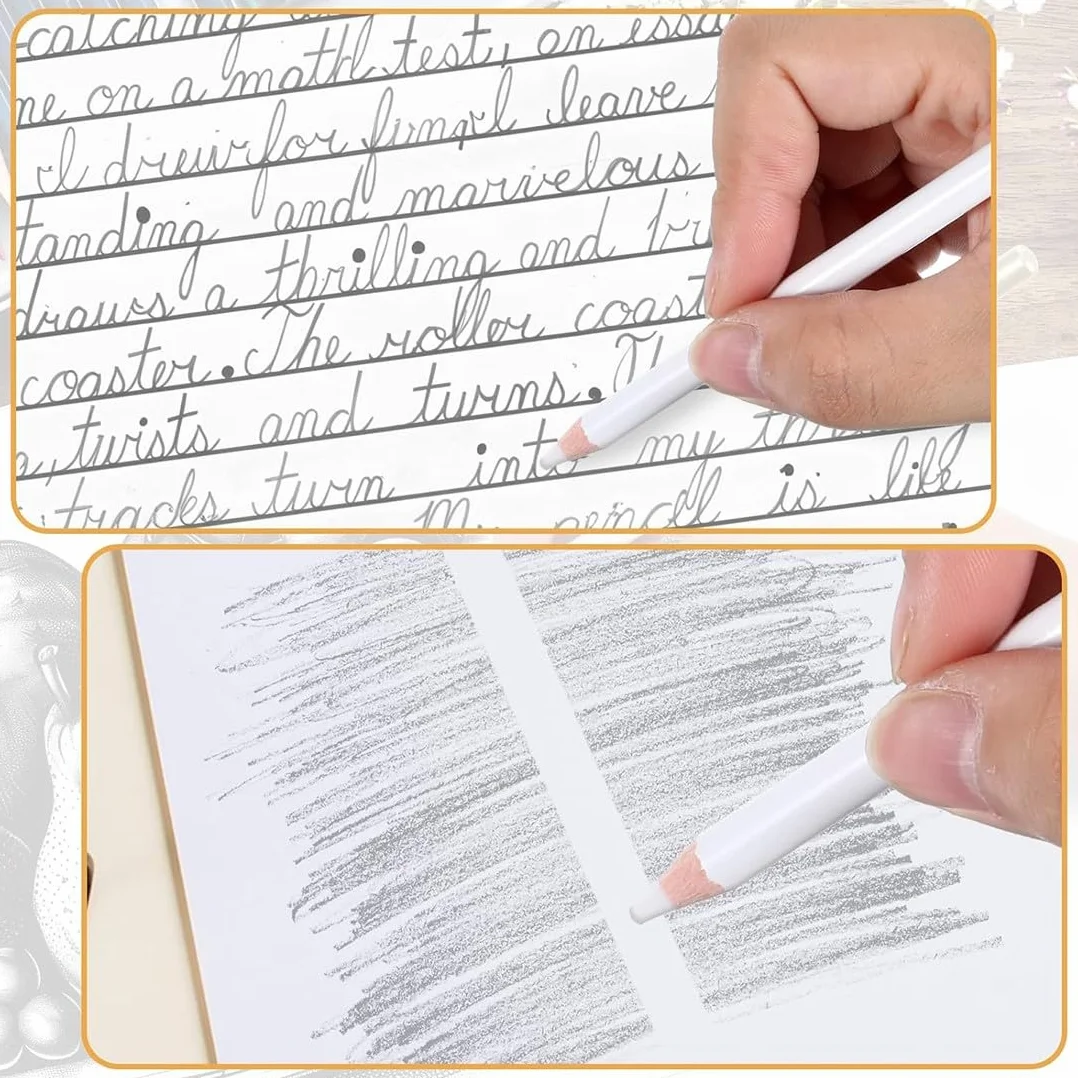 catching
me on a math test, on essa
I drew for fun I leave
tanding and marvelous
draws a thrilling and
coaster. The roller coast
twists and turns. Th
into my
tracks turn is like
My pencil